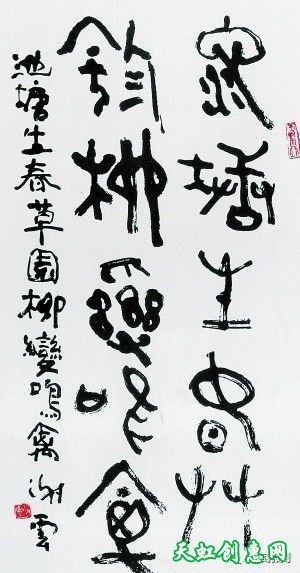 池塘生春艸
園柳變鳴禽
池塘生春草園柳變鳴禽 謝雲
天虹创意网